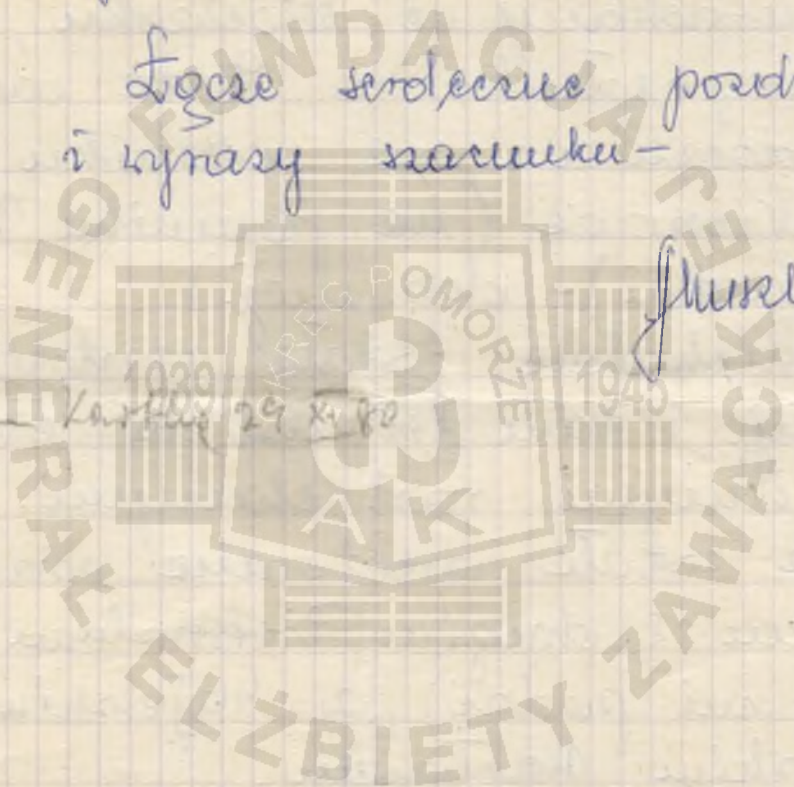 Łączę serdeczne pozd
i wyrazy szacunku-
29 XII 80
FUNDACJA
GENERAŁ ELŻBIETY ZAWACKIEJ
OKRĘG POMORZE
1939 1945
AK